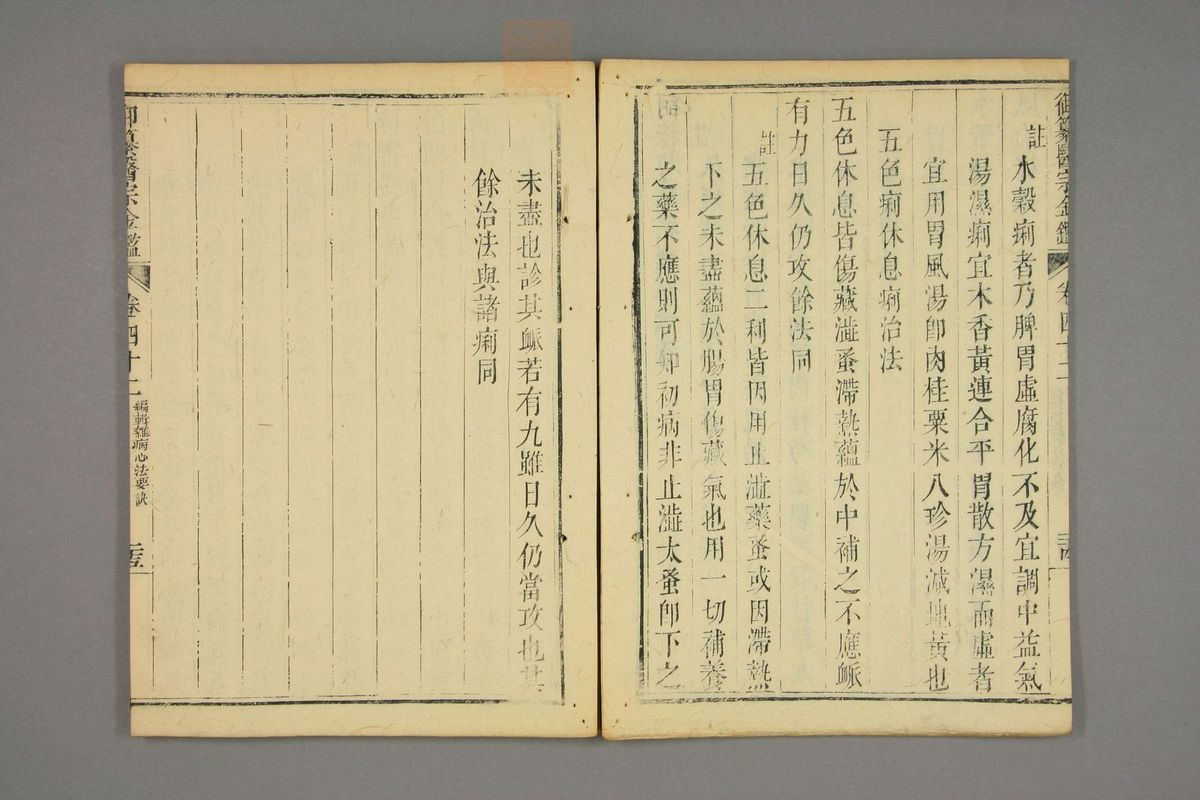 御纂醫宗金鑑 卷四十二
註水穀痢者乃脾胃虛腐化不及宜調中益氣
湯濕痢宜木香黃連合平胃散方濕而虛者
宜用胃風湯卽肉桂粟米八珍湯減地黃也
五色痢休息痢治法
五色休息皆傷藏澁蚤滯熱蘊於中補之不應脈
有力日久仍攻餘法同
註五色休息二利皆因用止澁藥蚤或因滯熱
下之未盡蘊於腸胃傷藏氣也用一切補養
之藥不應則可知初病非止澁太蚤卽下之
未盡也診其脈若有九雖日久仍當攻也其
餘治法與諸痢同
御纂醫宗金鑑 卷四十二 編輯雜病心法要訣